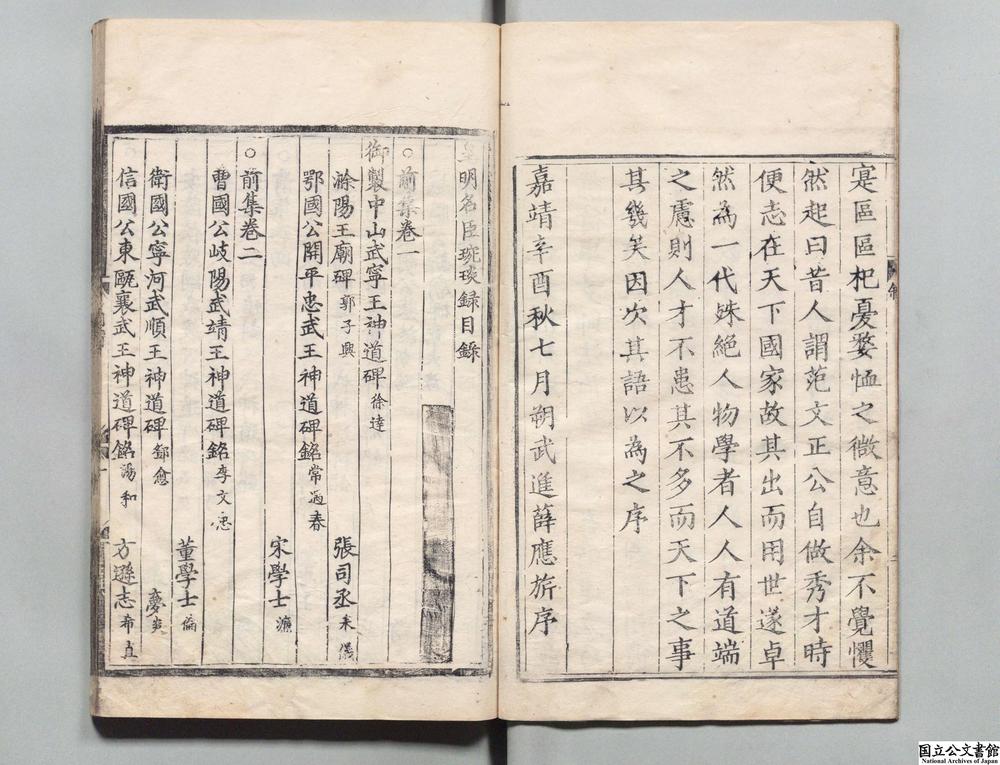 寔區區杞憂嫠恤之微意也余不覺懼
然起曰昔人謂范文正公自做秀才時
便志在天下國家故其出而用世遂卓
然為一代殊絕人物學者人人有道端
之慮則人才不患其不多而天下之事
其幾矣因次其語以為之序
嘉靖辛酉秋七月朔武進薛應旂序
皇明名臣琬琰録目錄
○前集卷一
御製中山武寧王神道碑 徐達
滁陽王廟碑 郭子興 張司丞 來儀
鄂國公開平忠武王神道碑銘 常遇春
宋學士 濂
○前集卷二
曹國公岐陽武靖王神道碑銘 李文忠
董學士 倫
衛國公寧河武順王神道碑 鄧愈
信國公東甌襄武王神道碑銘 湯和 方遜志 希直
国立公文書館
National Archives of Japan